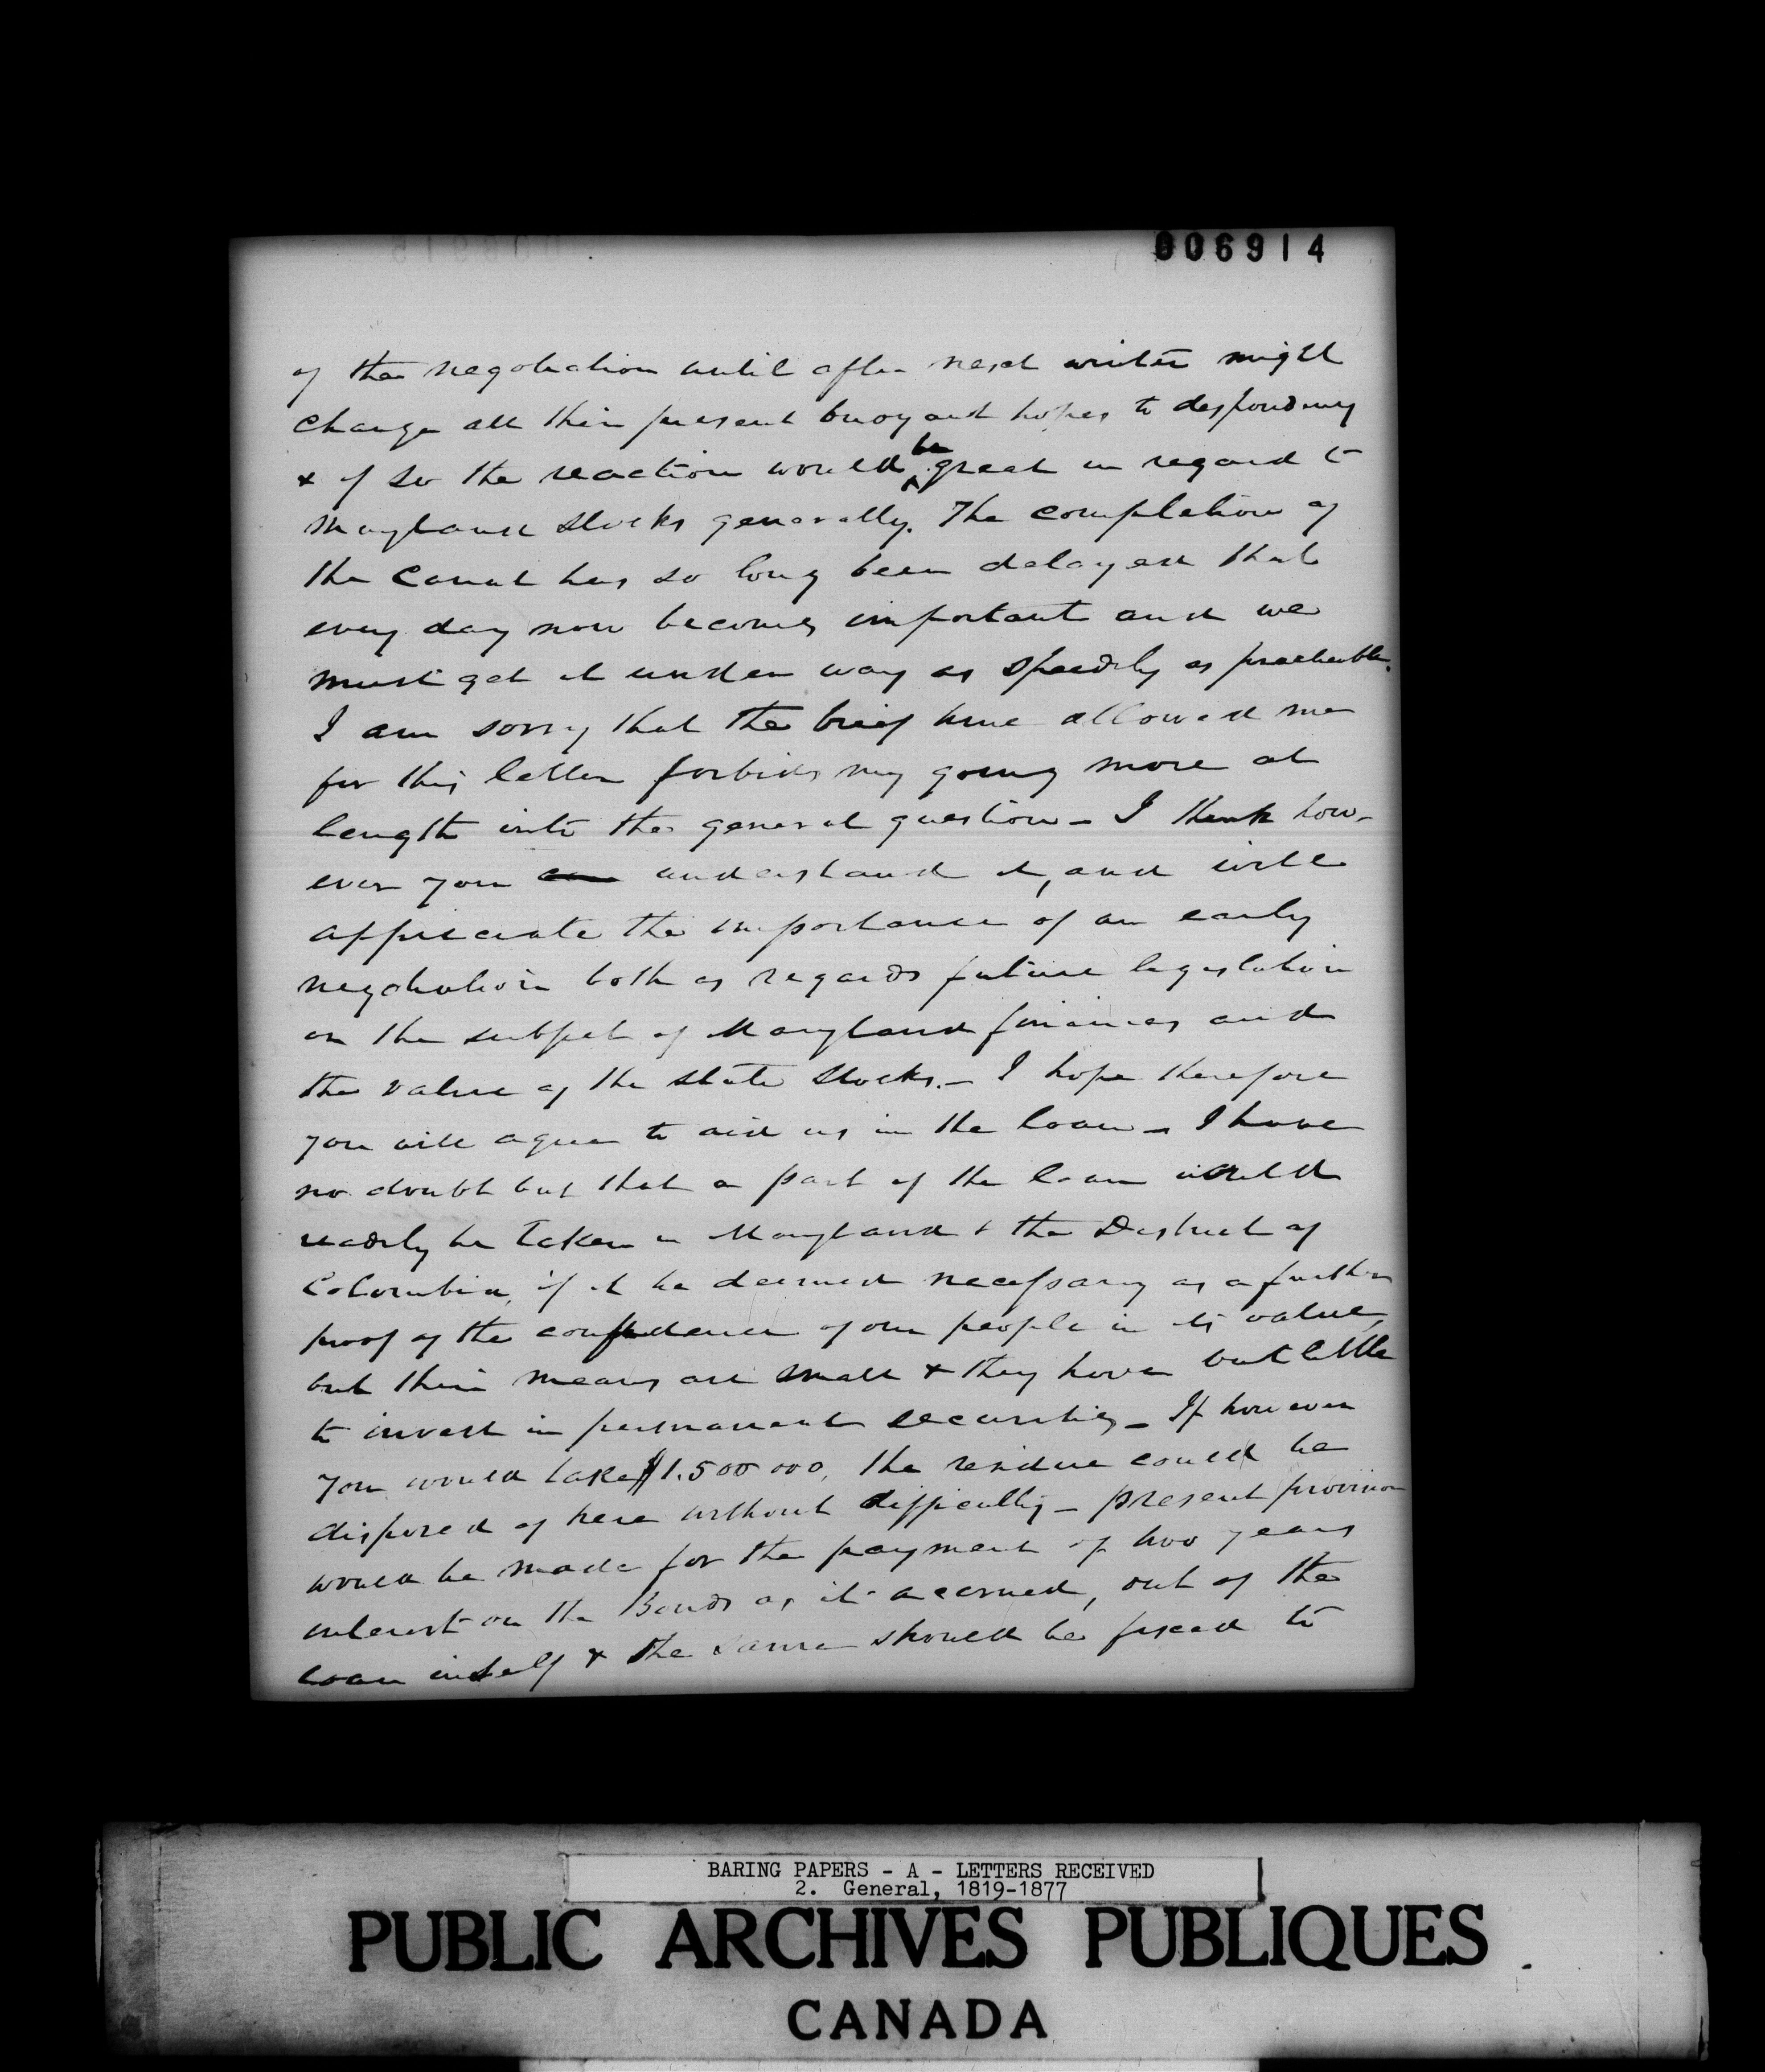 006914
of the negotiation until after next winter might
change all their present buoyant hopes to despondency
& if so the reaction would be great in regard to
Maryland stocks generally. The completion of
the Canal has so long been delayed that
every day now becomes important and we
must get it under way as speedily as practicable.
I am sorry that the brief time allowed me
for this letter forbids my going more at
length into the general question - I think how-
ever you understand it, and will
appreciate the importance of an early
negotiation both as regards future legislation
on the subject of Maryland finances and
the value of the State Stocks. - I hope therefore
you will agree to aid us in the loan - I have
no doubt but that a part of the loan would
readily be taken in Maryland & the District of
Columbia, if it be deemed necessary as a further
proof of the confidence of our people in its value,
but their means are small & they have but little
to invest in permanent securities - If however
you would take $1.500 000, the residue could be
disposed of here without difficulty - present provision
would be made for the payment of two years
interest on the Bonds as it accrued, out of the
loan itself & the same should be fixed to
BARING PAPERS - A - LETTERS RECEIVED
2. General, 1819-1877
PUBLIC ARCHIVES PUBLIQUES
CANADA